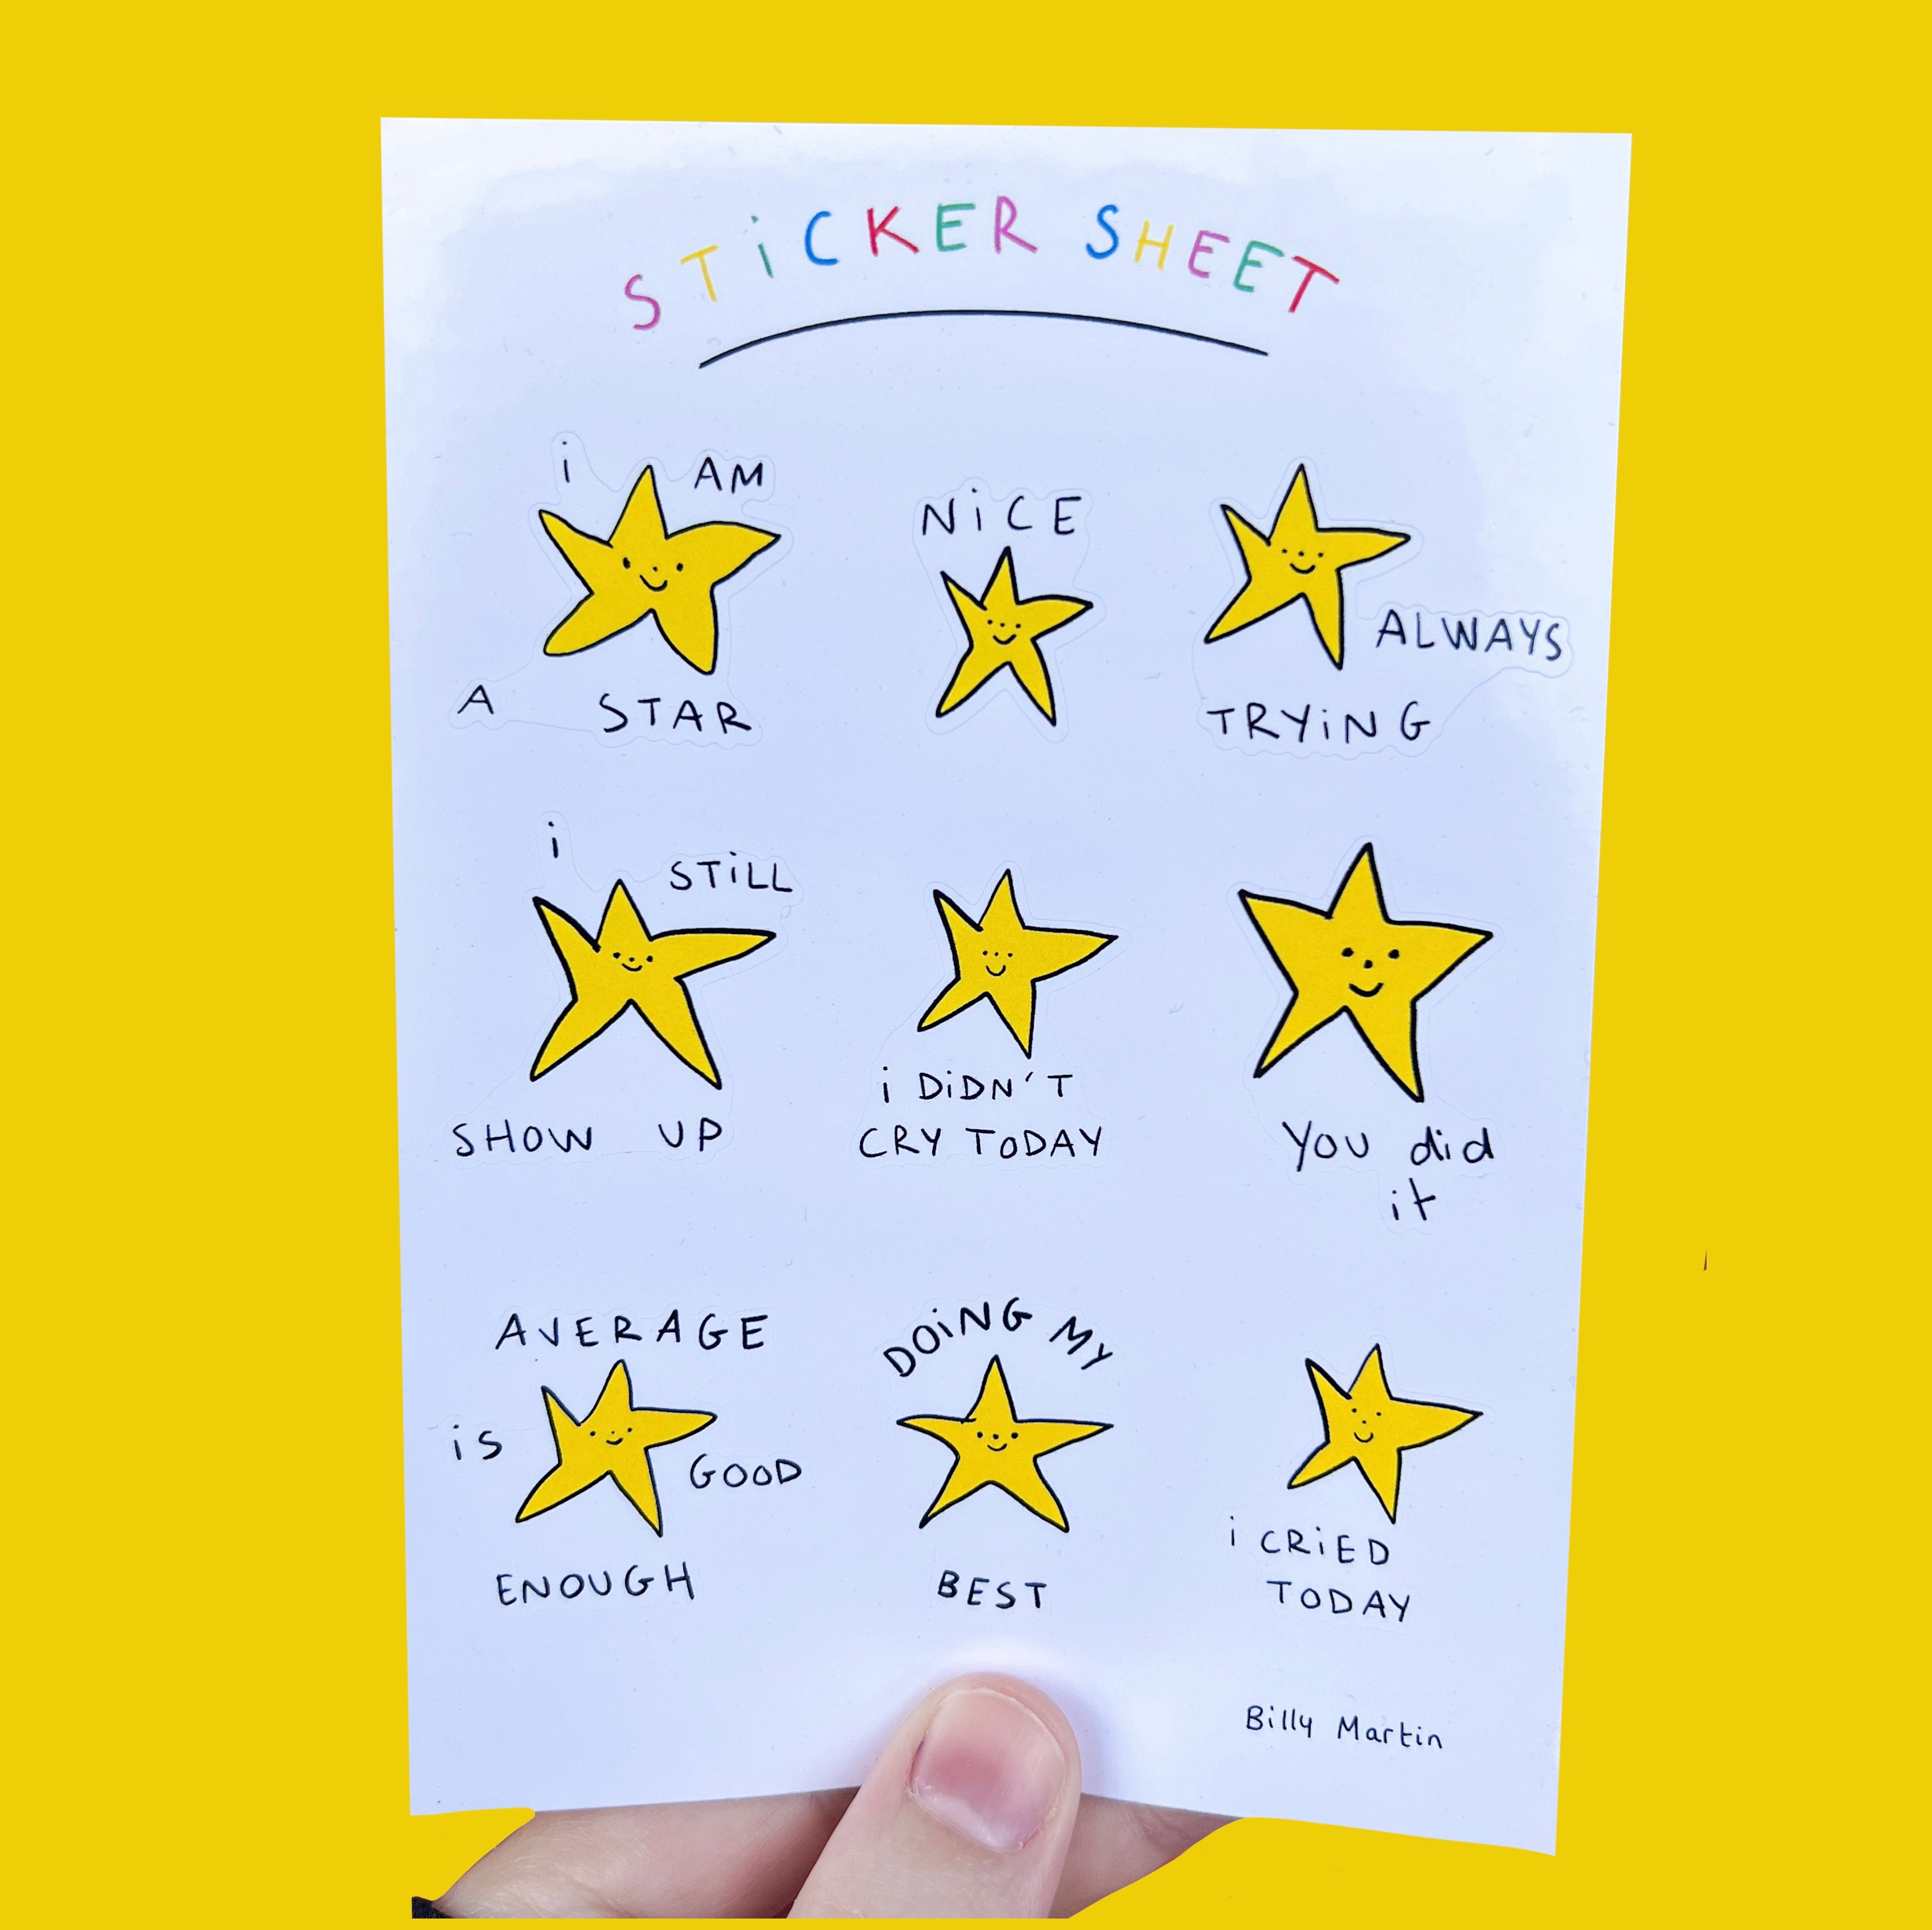 STiCKER SHEET
i AM
A STAR
NiCE
ALWAYS
TRYiNG
i STiLL
SHOW UP
i DiDN'T
CRY TODAY
You did
it
AVERAGE
is GOOD
ENOUGH
DOiNG MY
BEST
i CRiED
TODAY
Billy Martin